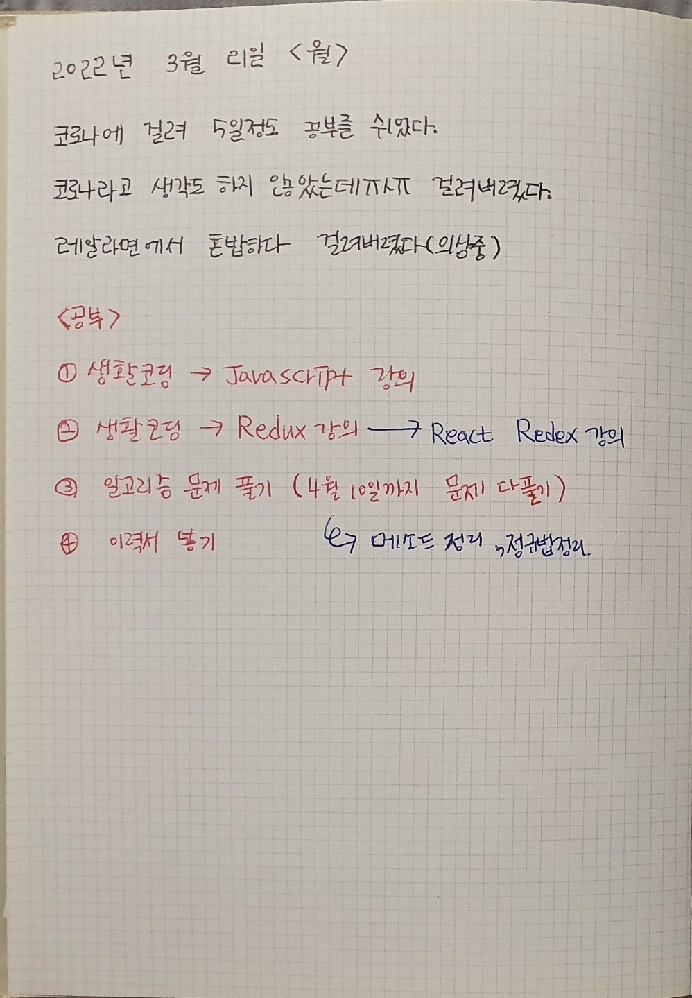 2022년 3월 21일 <월>
코로나에 걸려 5일정도 공부를 쉬었다.
코로나라고 생각도 하지 않았는데ㅠㅅㅠ 걸려버렸다.
레알라면에서 혼밥하다 걸려버렸다(의심중)
<공부>
① 생활코딩 → Javascript 강의
② 생활코딩 → Redux 강의 → React Redex 강의
③ 알고리즘 문제 풀기 (4월 10일까지 문제 다풀기)
④ 이력서 넣기 ↳ 메소드 정리, 정규법정리